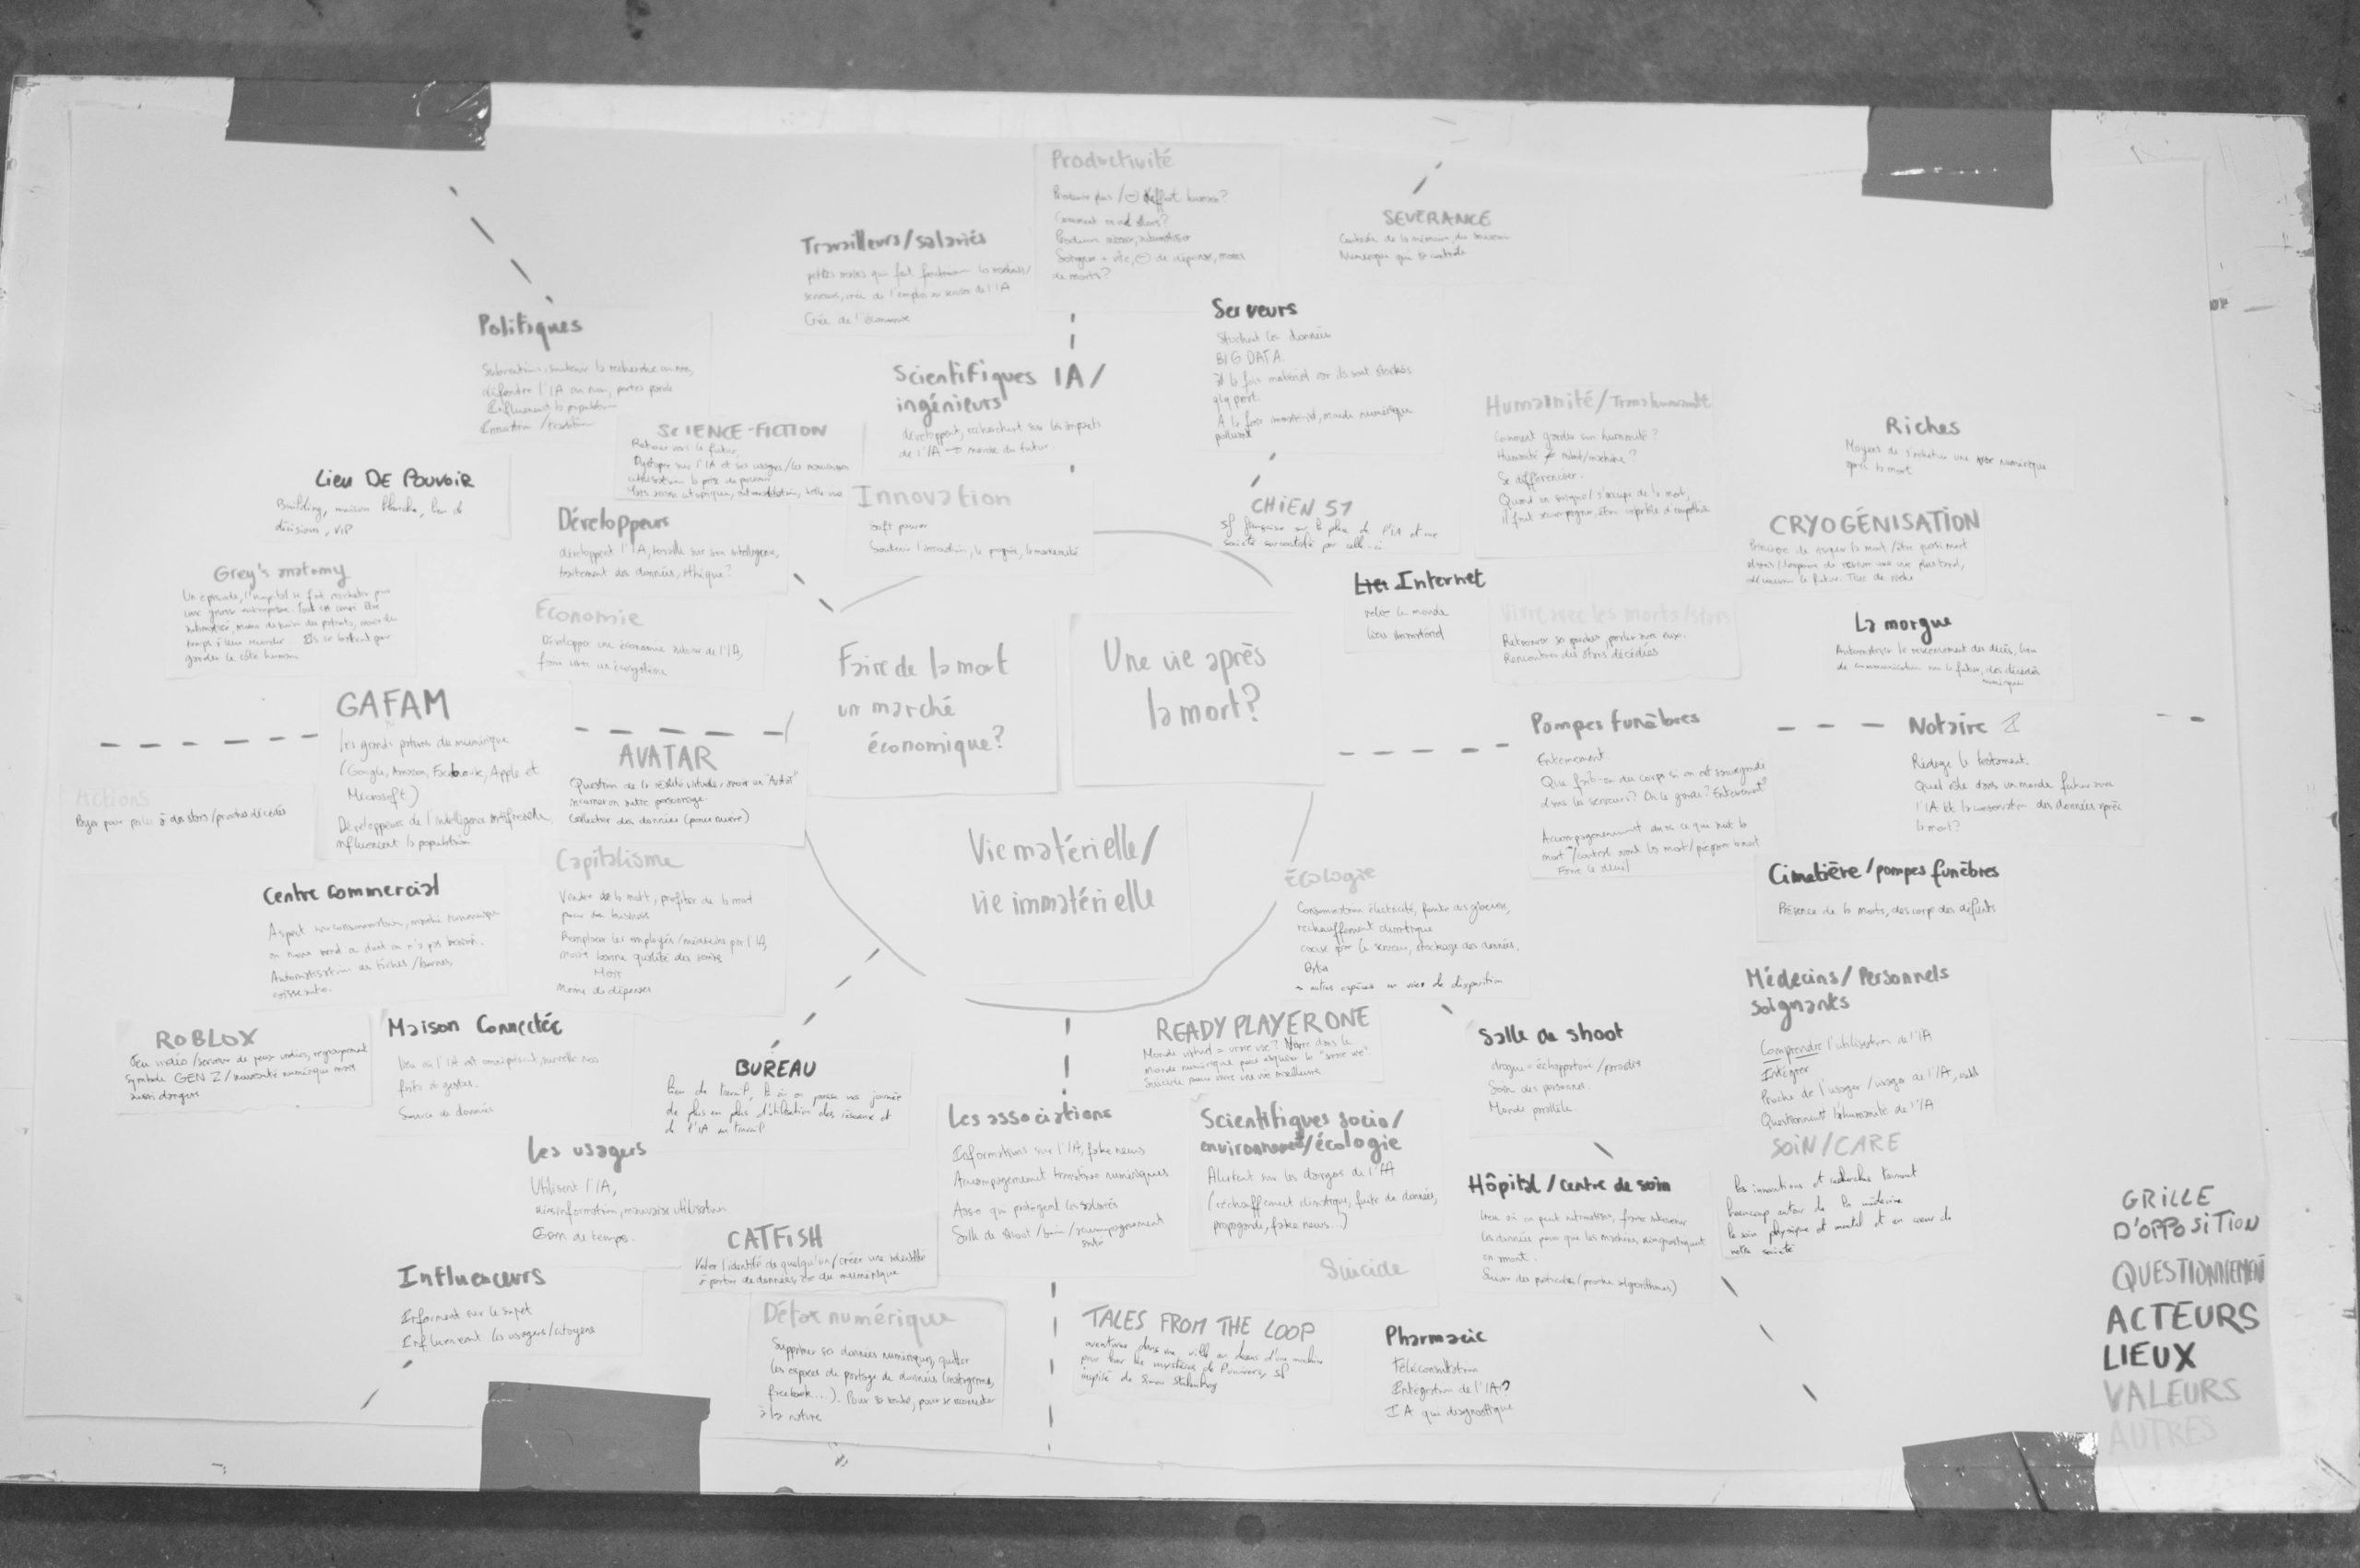 Productivité
Produire plus / ⊖ d'effort humain?
Soigner + vite, ⊖ de dépense, moins
de morts?
SEVERANCE
Contrôle de la mémoire, du
Numérique qui te contrôle
Travailleurs/salariés
petites mains qui fait fonctionner les
serveurs, crée de l'emploi au service de l'IA
Crée de l'économie
Politiques
Subventions, soutenir la recherche ou non,
défendre l'IA ou non, porter parole
Influencent la population
Innovation / tradition
Serveurs
Stockent les données
BIG DATA.
à la fois matériel car ils sont stockés
qlq part.
À la fois immatériel, monde numérique
polluant
Scientifiques IA/
ingénieurs
développent, recherchent sur les impacts
de l'IA → monde du futur.
SCIENCE-FICTION
Retour vers le futur
Dystopie sur l'IA et ses usages/la mauvaise
utilisation la prise de pouvoir
Humanité/Transhumanité
Comment garder son humanité?
Humanité ≠ robot/machine?
Se différencier.
Quand on soigne/s'occupe de la mort,
il faut accompagner, être capable d'empathie
Riches
Moyens de s'acheter une vie numérique
après la mort
Lieu DE POUVOIR
Building, maison blanche, lieu de
décisions, VIP
Innovation
Soft power
Soutenir l'innovation, le progrès, la modernité
CHIEN 51
SF française sur la place de l'IA et une
société surcontrolé par celle-ci
CRYOGÉNISATION
Développeurs
développent l'IA, travaille sur son intelligence,
traitement des données, éthique?
Grey's anatomy
Un épisode, l'hopital se fait racheter par
une grosse entreprise. Tout est censé être
automatisé, moins de
garder le côté humain
Internet
relie le monde
lieu immatériel
Economie
Développer une économie autour de l'IA,
faire vivre un écosystème
Vivre avec les morts/stars
Retrouver ses proches, parler avec eux.
Rencontrer des stars décédées
La morgue
Automatiser le recensement des décès, lieu
de communication sur le futur, des décédés
numérique
Faire de la mort
un marché
économique?
Une vie après
la mort?
GAFAM
les grands patrons du numérique
(Google, Amazon, Facebook, Apple et
Microsoft)
Développeurs de l'intelligence artificielle,
influencent la population
AVATAR
Question de la réalité virtuelle, avoir un "Avatar"
incarner un autre personnage.
Collecter des données (pour survivre)
Pompes funèbres
Enterrement.
Que fait-on du corps si on est sauvegardé
dans les serveurs? On le garde? Enterrement?
Accompagnement dans ce que suit la
mort/contrat avant la mort/préparer la mort
Faire le deuil
Notaire
Rédige le testament.
Quel rôle dans un monde futur avec
l'IA et la conservation des données après
la mort?
Actions
Payer pour parler à des stars/proches décédés
Vie matérielle/
vie immatérielle
Capitalisme
Vendre de la mort, profiter de la mort
pour du business
Remplacer les employés/médecins par l'IA,
moins bonne qualité des soins
Mais
Moins de dépenses
Écologie
Consommation électricité, fonte des glaciers,
réchauffement climatique
causé par le serveur, stockage des données.
Datas
autres espèces en voie de disparition
Cimetière/pompes funèbres
Présence de la morts, des corps des défunts
Centre commercial
Aspect surconsommation, marché numérique
on nous vend ce dont on n'a pas besoin.
Automatisation des tâches/bornes,
caisse auto.
Médecins/Personnels
soignants
Comprendre l'utilisation de l'IA
Intégrer
Proche de l'usager/usager de l'IA, outil
Questionnent l'humanité de l'IA
ROBLOX
Jeu vidéo/serveur de jeux vidéos, regroupement
Symbole GEN Z/nouveauté numérique mais
aussi dangers
Maison Connectée
lieu où l'IA est omniprésent, surveille nos
faits & gestes.
Source de données
READY PLAYER ONE
Monde virtuel = vraie vie? Vivre dans le
monde numérique pour esquiver la "vraie vie".
Suicide pour vivre une vie meilleure
Salle de shoot
drogue = échappatoire/paradis
Soin des personnes.
Monde parallèle
BUREAU
lieu de travail, là où on passe nos journées
de plus en plus d'utilisation des réseaux et
de l'IA au travail
Les associations
Informations sur l'IA, fake news
Accompagnement transition numériques
Asso qui protègent les salariés
Salle de shoot/soin/accompagnement
santé
Scientifiques socio/
environnement/écologie
Alertent sur les dangers de l'IA
(réchauffement climatique, fuite de données,
propagande, fake news...)
Les usagers
Utilisent l'IA,
désinformation, mauvaise utilisation
Gain de temps.
SOIN/CARE
Les innovations et recherches tournent
beaucoup autour de la médecine
le soin physique et mental est au cœur de
notre société
Hôpital/centre de soin
lieu où on peut automatiser, faire
les données pour que les machines diagnostiquent
en amont.
CATFISH
Voler l'identité de quelqu'un/créer une identité
à partir de données du numérique
Suicide
Influenceurs
Informent sur le sujet
Influencent les usagers/citoyens
Détox numérique
Supprimer ses données numériques, quitter
les espaces de partage de données (instagram,
facebook...). Pour la santé, pour se reconnecter
à la nature
TALES FROM THE LOOP
aventures dans une ville au dessus d'une machine
pour percer les mystères de l'univers, SF
inspiré de Simon Stalenhag
Pharmacie
Téléconsultation
Intégration de l'IA?
IA qui diagnostique
GRILLE
D'OPPOSITION
QUESTIONNEMENT
ACTEURS
LIEUX
VALEURS
AUTRES